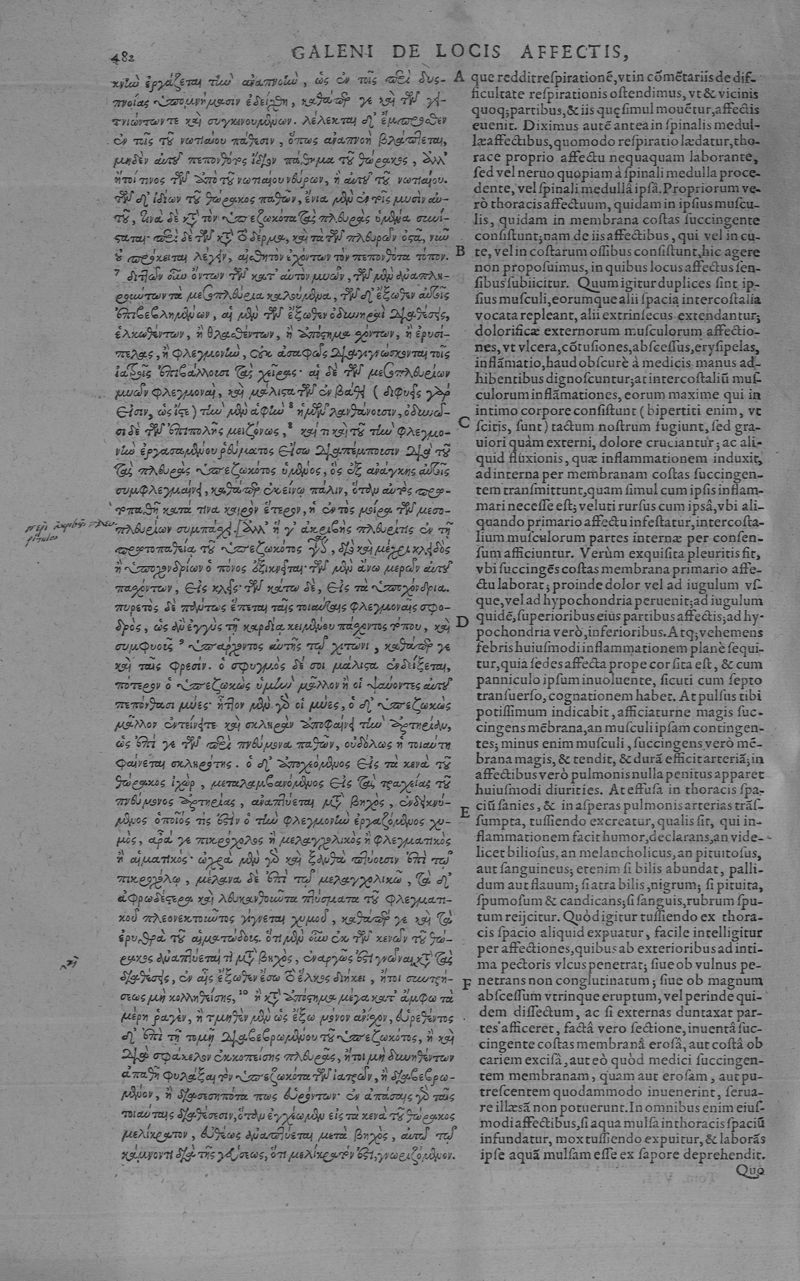 482 GALENI DE LOCIS AFFECTIS,
κνίω ἐργάζεται τὴν ἀναπνοὴν, ὡς ἐν τοῖς περὶ δυσ-
πνοίας ὑπομνήμασιν ἐδείχθη, καθάπερ γε καὶ τῶν γει-
τνιώντων τε καὶ συγκινουμένων. λέλεκται δ' ἔμπροσθεν
ἐν τοῖς τοῦ νωτιαίου πάθεσιν, ὅπως ἀναπνοὴ βλάπτεται,
μηδὲν αὐτοῦ πεπονθότος ἴδιον πάθημα τοῦ θώρακος, ἀλλ'
ἤτοι τινος τῶν ἀπὸ τοῦ νωτιαίου νεύρων, ἢ αὐτοῦ τοῦ νωτιαίου.
τῶν δ' ἰδίων τοῦ θώρακος παθῶν, ἔνια μὲν ἐν τοῖς μυσὶν αὐ-
τοῦ, τινὰ δὲ κατὰ τὸν ὑπεζωκότα τὰς πλευρὰς ὑμένα συνί-
σταται· περὶ δὲ τῶν κατὰ τὸ δέρμα, καὶ τὰ τῶν πλευρῶν ὀστᾶ, νῦν
οὐ πρόκειται λέγειν, αἰσθητὸν ἐχόντων τὸν πεπονθότα τόπον.
7 διττῶν οὖν ὄντων τῶν κατ' αὐτὸν μυῶν, τῶν μὲν ἀναπλη-
ρούντων τὰ μεσοπλεύρια καλούμενα, τῶν δ' ἔξωθεν αὐτοῖς
ἐπιβεβλημένων, αἱ μὲν τῶν ἔξωθεν ὀδυνηραὶ διαθέσεις,
ἑλκωθέντων, ἢ θλασθέντων, ἢ ἀπόστημα σχόντων, ἢ ἐρυσί-
πελας, ἢ φλεγμονὴν, οὐκ ἀσαφῶς διαγινώσκονται τοῖς
ἰατροῖς ἐπιβάλλουσι τὰς χεῖρας· αἱ δὲ τῶν μεσοπλευρίων
μυῶν φλεγμοναὶ, καὶ μάλιστα τῶν ἐν βάθει (διφυεῖς γάρ
εἰσιν, ὡς ἴστε) τὴν μὲν ἁφὴν 8 ἡμῶν λανθάνουσιν, ὀδυνῶσι
δὲ τῶν ἐπιπολῆς μειζόνως, 8 καί τι καὶ τοῦ τὴν φλεγμο-
νὴν ἐργασαμένου ῥεύματος εἴσω διαπέμπουσιν διὰ τοῦ
τὰς πλευρὰς ὑπεζωκότος ὑμένος, ὃς ἐξ ἀνάγκης αὐτοῖς
συμφλεγμαίνει, καθάπερ ἐκείνῳ πάλιν, ὅταν αὐτὸς πρω-
τοπαθῇ κατά τινα καιρὸν ἕτερον, ἡ ἐντὸς μοῖρα τῶν μεσο-
πλευρίων συμπάσχει. ἀλλ' ἥ γ' ἀκριβὴς πλευρῖτις ἐν τῇ
πρωτοπαθείᾳ τοῦ ὑπεζωκότος, διὸ καὶ μέχρι κλειδὸς
ἢ ὑποχονδρίων ὁ πόνος ἐξικνεῖται· τῶν μὲν ἄνω μερῶν αὐτοῦ
πασχόντων, εἰς κλεῖς· τῶν κάτω δὲ, εἰς τὰ ὑποχόνδρια.
πυρετὸς δὲ πάντως ἕπεται ταῖς τοιαύταις φλεγμοναῖς σφο-
δρὸς, ὡς ἂν ἐγγὺς τῇ καρδίᾳ κειμένου πάσχοντος τόπου, καὶ
συμφυοῦς 9 ὑπάρχοντος αὐτῆς τῷ χιτῶνι, καθάπερ γε
καὶ ταῖς φρεσίν. ὁ σφυγμὸς δέ σοι μάλιστα ἐνδείξεται,
πότερον ὁ ὑπεζωκὼς ὑμὴν μᾶλλον ἢ οἱ ψαύοντες αὐτοῦ
πεπόνθασι μύες· ἧττον μὲν γὰρ οἱ μύες, ὁ δ' ὑπεζωκὼς
μᾶλλον ἐντείνει τε καὶ σκληρὰν ἀποφαίνει τὴν ἀρτηρίαν,
ὡς ἐπί γε τῶν περὶ πνεύμονα παθῶν, οὐδόλως ἡ τοιαύτη
φαίνεται σκληρότης. ὁ δ' ὑποχεόμενος εἰς τὰ κενὰ τοῦ
θώρακος ἰχὼρ, μεταλαμβανόμενος εἰς τὰς τραχείας τοῦ
πνεύμονος ἀρτηρίας, ἀναπτύεται μετὰ βηχὸς, ἐνδεικνύ-
μενος ὁποῖός τις ἐστὶν ὁ τὴν φλεγμονὴν ἐργαζόμενος χυ-
μὸς, ἆρά γε πικρόχολος ἢ μελαγχολικὸς ἢ φλεγματικὸς
ἢ αἱματικός· ὠχρὰ μὲν γὰρ καὶ ξανθὰ πτύουσιν ἐπὶ τῷ
πικροχόλῳ, μέλανα δὲ ἐπὶ τῷ μελαγχολικῷ, τὰ δ'
ἀφρωδέστερα καὶ λευκανθίζοντα πτύσματα τοῦ φλεγματι-
κοῦ πλεονεκτοῦντος γίγνεται χυμοῦ, καθάπερ γε καὶ τὰ
ἐρυθρὰ τοῦ αἱματώδους. ὅτι μὲν οὖν ἐκ τῶν κενῶν τοῦ θώ-
ρακος ἀναπτύεταί τι μετὰ βηχὸς, ἐναργῶς ἐστι γνῶναι κατὰ τὰς
διαθέσεις, ἐν αἷς ἔξωθεν ἔσω τὸ ἕλκος διήκει, ἤτοι συντρή-
σεως μὴ κολληθείσης, 10 ἢ κατὰ ἀπόστημα μέγα κατ' ἄμφω τὰ
μέρη ῥαγὲν, ἢ τμηθὲν μὲν ὡς ἔξω μόνον ἀνίσχον, εὑρεθέντος
δ' ἐπὶ τῇ τομῇ διαβεβρωμένου τοῦ ὑπεζωκότος, ἢ καὶ
διὰ σφάκελον ἐκκοπείσης πλευρᾶς, ἤτοι μὴ δυνηθέντων
ἀπαθῆ φυλάξαι τὸν ὑπεζωκότα τῶν ἰατρῶν, ἢ διαβεβρω-
μένον, ἢ διασεσηπότα πως εὑρόντων· ἐν ἁπάσαις γὰρ ταῖς
τοιαύταις διαθέσεσιν, ὅταν ἐγχέωμεν εἰς τὰ κενὰ τοῦ θώρακος
μελίκρατον, εὐθέως ἀναπτύεται μετὰ βηχὸς, αὐτῷ τῷ
κάμνοντι διὰ τῆς γεύσεως, ὅτι μελίκρατόν ἐστι, γνωριζόμενον.
A que reddit respirationē, vt in cōmētariis de dif-
ficultate respirationis ostendimus, vt & vicinis
quoq; partibus, & iis quę simul mouētur, affectis
euenit. Diximus autē antea in spinalis medul-
læ affectibus, quomodo respiratio lædatur, tho-
race proprio affectu nequaquam laborante,
sed vel neruo quopiam à spinali medulla proce-
dente, vel spinali medullâ ipsâ. Propriorum ve-
rò thoracis affectuum, quidam in ipsius muscu-
lis, quidam in membrana costas succingente
consistunt; nam de iis affectibus, qui vel in cu-
B te, vel in costarum ossibus consistunt, hic agere
non proposuimus, in quibus locus affectus sen-
sibus subiicitur. Quum igitur duplices sint ip-
sius musculi, eorumque alii spacia intercostalia
vocata repleant, alii extrinsecus extendantur;
dolorificæ externorum musculorum affectio-
nes, vt vlcera, cōtusiones, abscessus, erysipelas,
inflāmatio, haud obscurè à medicis manus ad-
hibentibus dignoscuntur; at intercostaliū mus-
culorum inflāmationes, eorum maxime qui in
intimo corpore consistunt (bipertiti enim, vt
C scitis, sunt) tactum nostrum fugiunt, sed gra-
uiori quàm externi, dolore cruciantur; ac ali-
quid fluxionis, quæ inflammationem induxit,
ad interna per membranam costas succingen-
tem transmittunt, quam simul cum ipsis inflam-
mari necesse est; veluti rursus cum ipsâ, vbi ali-
quando primario affectu infestatur, intercosta-
lium musculorum partes internæ per consen-
sum afficiuntur. Verùm exquisita pleuritis fit,
vbi succingēs costas membrana primario affe-
ctu laborat; proinde dolor vel ad iugulum vs-
que, vel ad hypochondria peruenit; ad iugulum
D quidē, superioribus eius partibus affectis; ad hy-
pochondria verò, inferioribus. Atq; vehemens
febris huiusmodi inflammationem planè sequi-
tur, quia sedes affecta prope cor sita est, & cum
panniculo ipsum inuoluente, sicuti cum septo
transuerso, cognationem habet. At pulsus tibi
potissimum indicabit, afficiaturne magis suc-
cingens mēbrana, an musculi ipsam contingen-
tes; minus enim musculi, succingens verò mē-
brana magis, & tendit, & durā efficit arteriā; in
affectibus verò pulmonis nulla penitus apparet
huiusmodi diurities. At effusa in thoracis spa-
E ciū sanies, & in asperas pulmonis arterias trās-
sumpta, tussiendo excreatur, qualis sit, qui in-
flammationem facit humor, declarans, an vide-
licet biliosus, an melancholicus, an pituitosus,
aut sanguineus; etenim si bilis abundat, palli-
dum aut flauum; si atra bilis, nigrum; si pituita,
spumosum & candicans; si sanguis, rubrum spu-
tum reijcitur. Quòd igitur tussiendo ex thora-
cis spacio aliquid expuatur, facile intelligitur
per affectiones, quibus ab exterioribus ad inti-
ma pectoris vlcus penetrat; siue ob vulnus pe-
F netrans non conglutinatum; siue ob magnum
abscessum vtrinque eruptum, vel perinde qui-
dem dissectum, ac si externas duntaxat par-
tes afficeret, factâ vero sectione, inuentâ suc-
cingente costas membranâ erosâ, aut costâ ob
cariem excisâ, aut eò quòd medici succingen-
tem membranam, quam aut erosam, aut pu-
trescentem quodammodo inuenerint, serua-
re illæsā non potuerunt. In omnibus enim eius-
modi affectibus, si aqua mulsa in thoracis spaciū
infundatur, mox tussiendo expuitur, & laborās
ipse aquā mulsam esse ex sapore deprehendit.
Quo